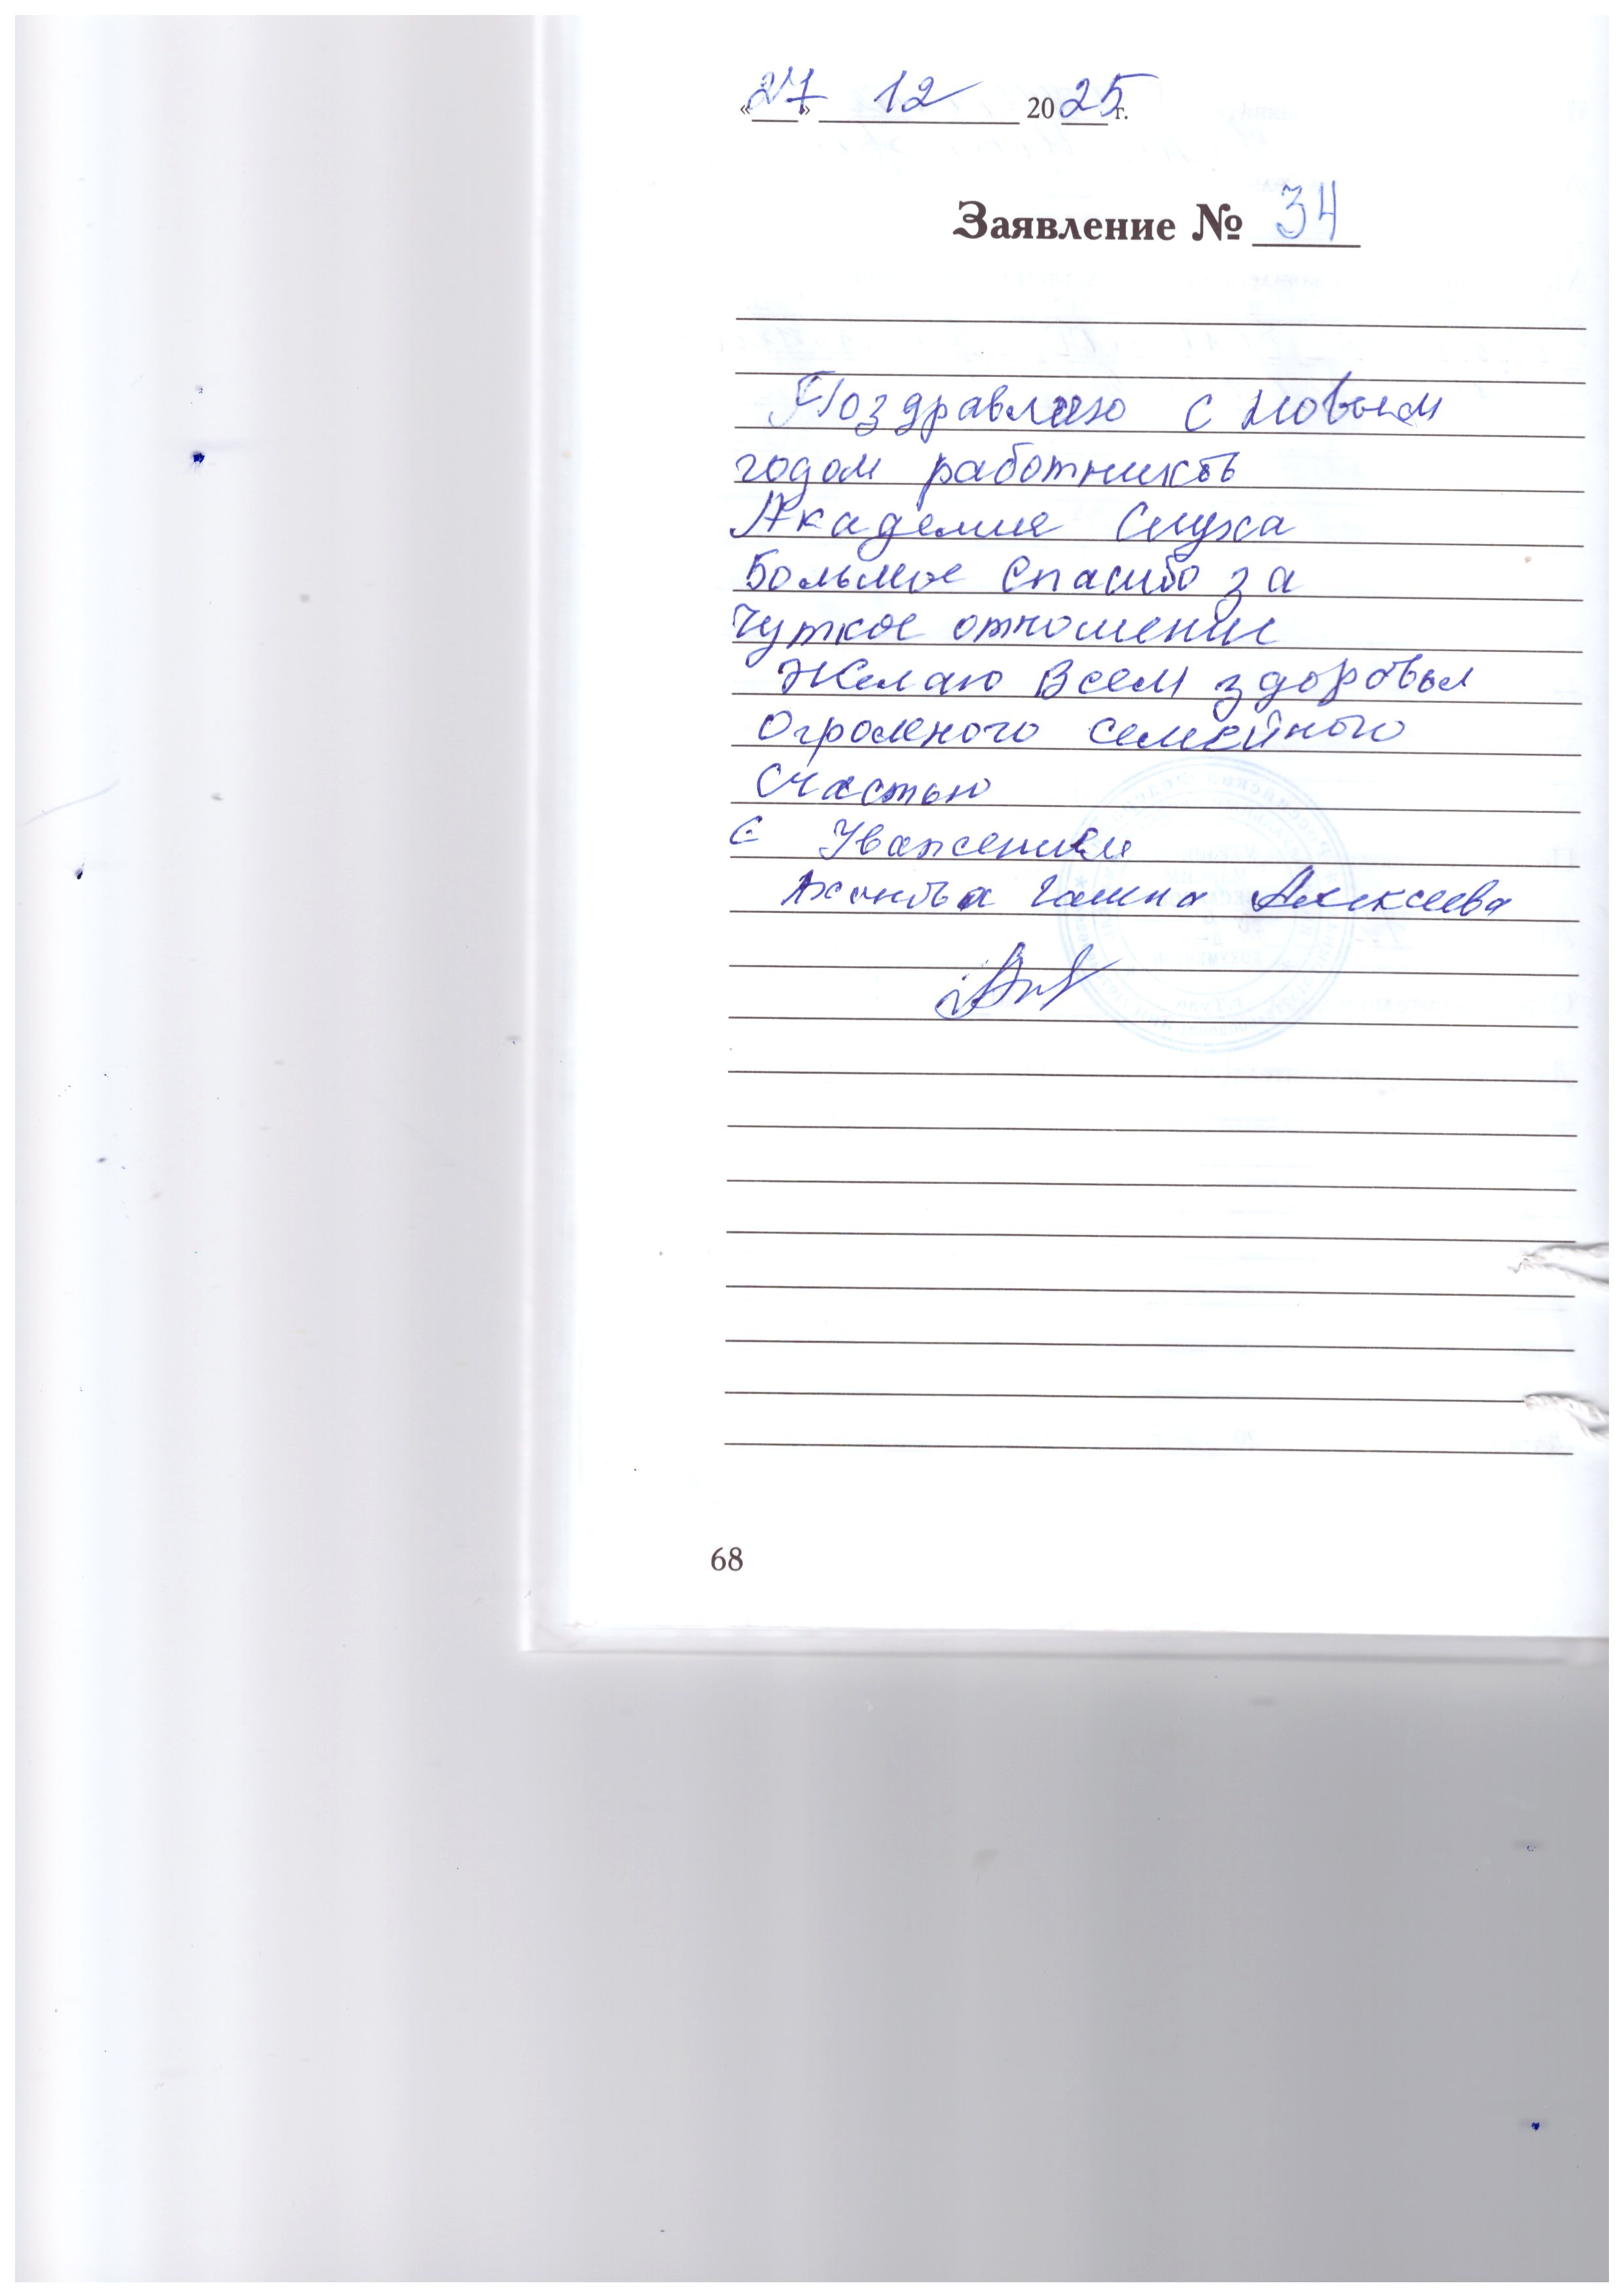 «27» 12 2025 г.
Заявление № 34
Поздравляю с новым
годом работников
Академие Слуха
Большое Спасибо за
Чуткое отношение
Желаю Всем здоровья
Огромного семейного
Счастью
С Уважением
Галина Алексеева
68